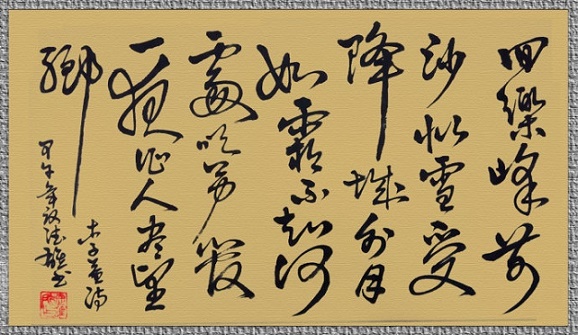 回樂峰前
沙似雪受
降城外月
如霜不知何
處吹芦管
一夜征人尽望
鄉
李益诗
甲午年德雄书